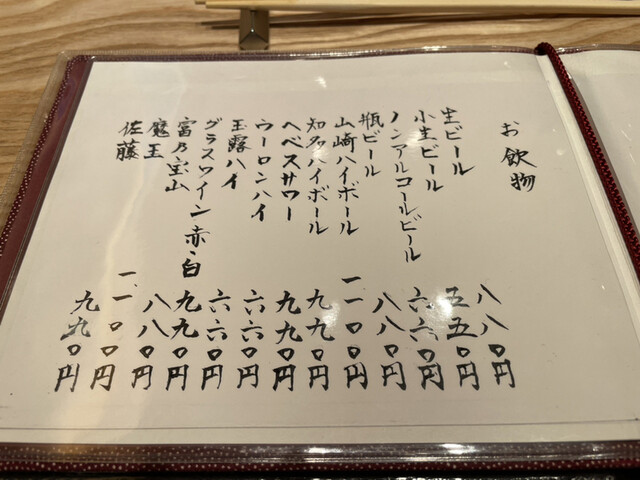 お飲物
生ビール 八八〇円
小生ビール 五五〇円
ノンアルコールビール 六六〇円
瓶ビール 八八〇円
山崎ハイボール 一一〇〇円
知多ハイボール 九九〇円
ヘベスサワー 九九〇円
ウーロンハイ 六六〇円
玉露ハイ 六六〇円
グラスワイン 赤・白 九九〇円
富乃宝山 八八〇円
魔王 一一〇〇円
佐藤 九九〇円